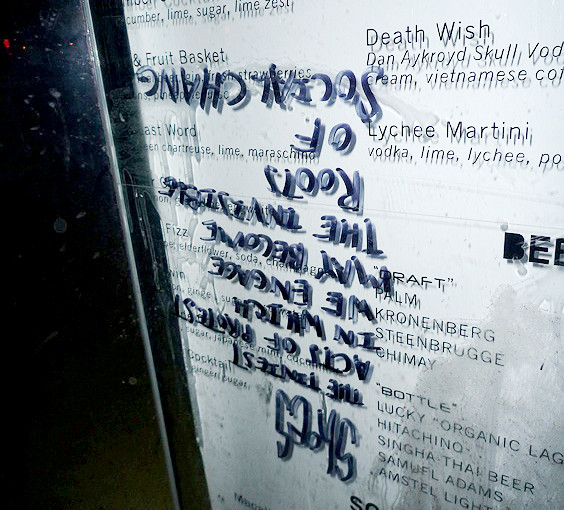 cumber, lime, sugar, lime zest
& Fruit Basket
strawberries
Last Word
chartreuse, lime, maraschino
Fizz
elderflower, soda, champagne
Cocktail
ginger, sugar,
Death Wish
Dan Aykroyd Skull Vod
cream, vietnamese cof
Lychee Martini
vodka, lime, lychee, po
BEE
"DRAFT"
PALM
KRONENBERG
STEENBRUGGE
CHIMAY
"BOTTLE"
LUCKY "ORGANIC LAG
HITACHINO
SINGHA THAI BEER
SAMUEL ADAMS
AMSTEL LIGHT
SO
THE TINIEST
ACTS OF PROTEST
IN WHICH
WE ENGAGE
MAY BECOME
THE INVISIBLE
ROOTS
OF
SOCIAL CHANGE